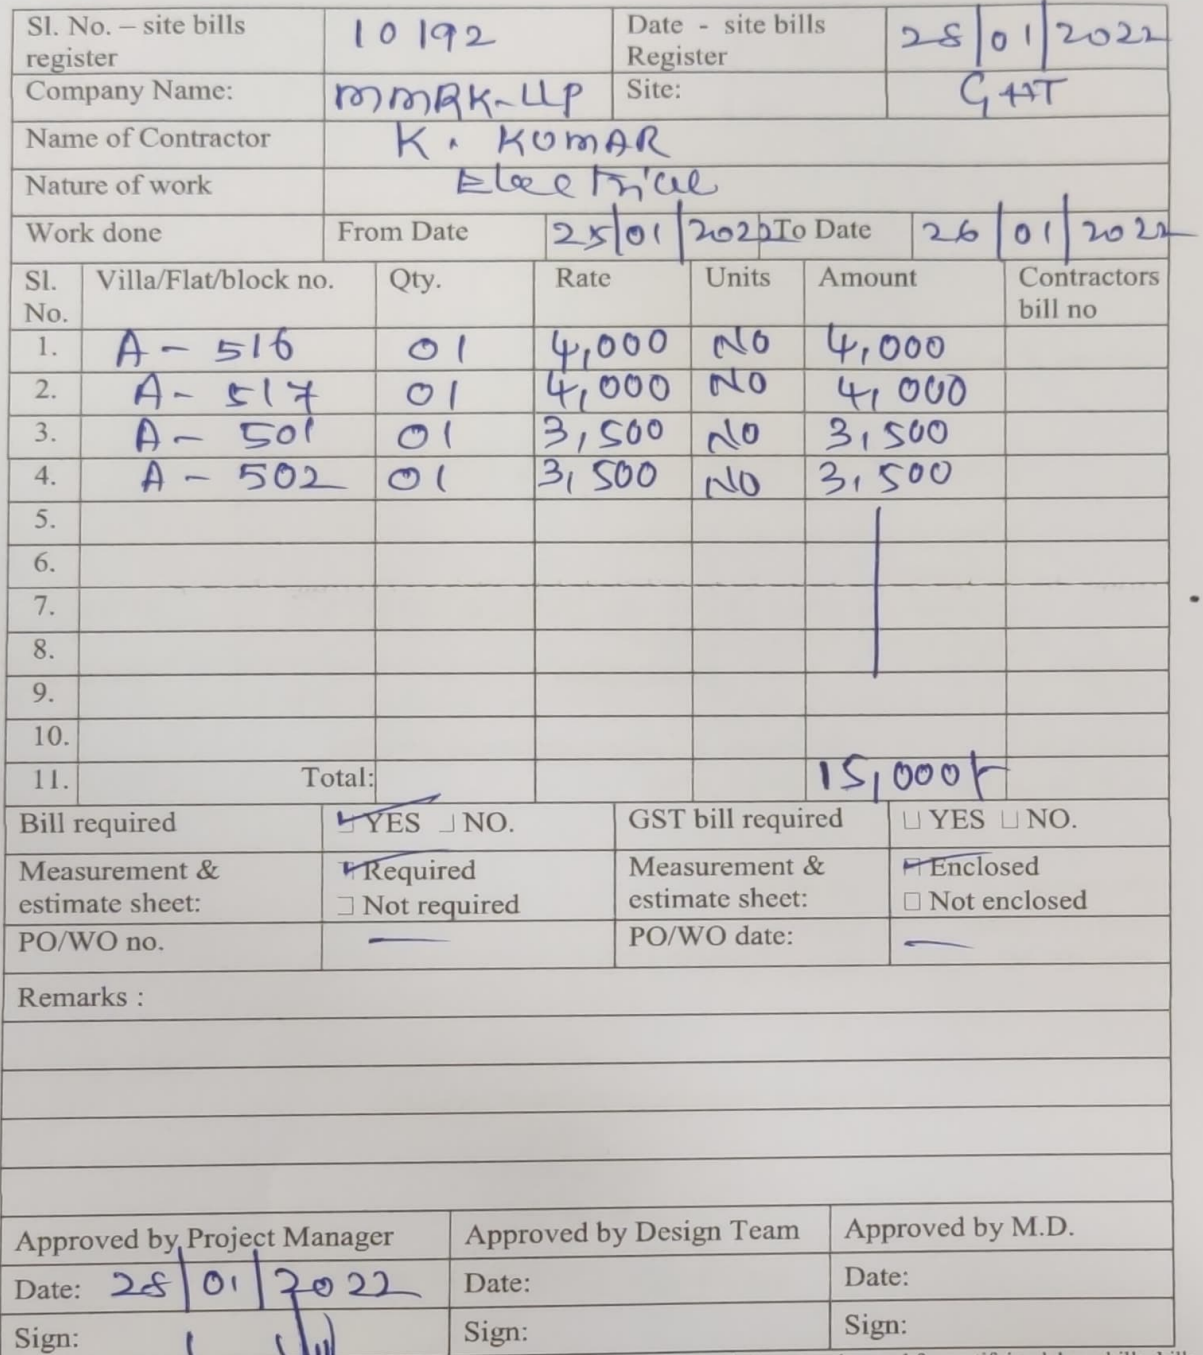 Sl. No. – site bills register 10192 Date - site bills Register 28/01/2022
Company Name: MMRK-LLP Site: GHT
Name of Contractor K. KUMAR
Nature of work Electrical
Work done From Date 25/01/2022 To Date 26/01/2022
Sl. No. Villa/Flat/block no. Qty. Rate Units Amount Contractors bill no
1. A - 516 01 4,000 NO 4,000
2. A - 517 01 4,000 NO 4,000
3. A - 501 01 3,500 NO 3,500
4. A - 502 01 3,500 NO 3,500
5.
6.
7.
8.
9.
10.
11. Total: 15,000/-
Bill required YES NO. GST bill required YES NO.
Measurement & estimate sheet: Required Not required Measurement & estimate sheet: Enclosed Not enclosed
PO/WO no. — PO/WO date: —
Remarks :
Approved by Project Manager Approved by Design Team Approved by M.D.
Date: 28/01/2022 Date: Date:
Sign: Sign: Sign: